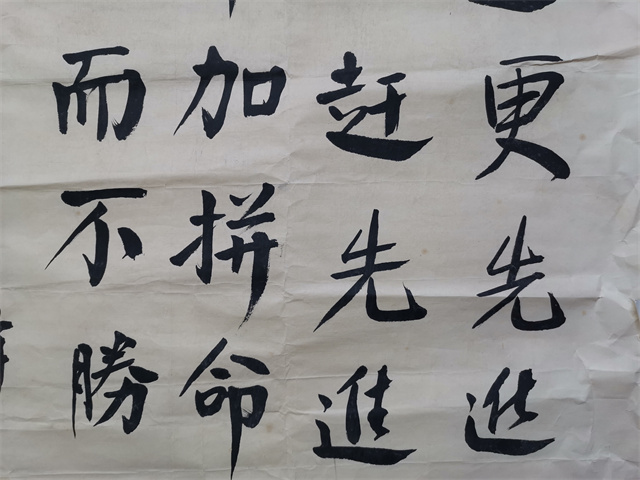 更先進
赶先進
加拼命
而不勝